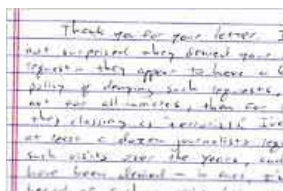 Thank you for your letter. I
not surprised they denied your
request - they appear to have a
policy of denying such requests,
not for all inmates, than for
they classing as "terrorist" I've
at least a dozen journalists
such visits over the years, and
have been denied - in